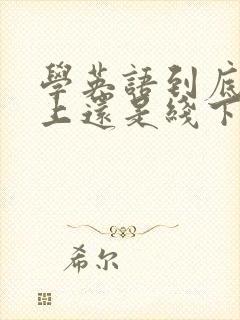 學英語到底
上還是綫下
希尔